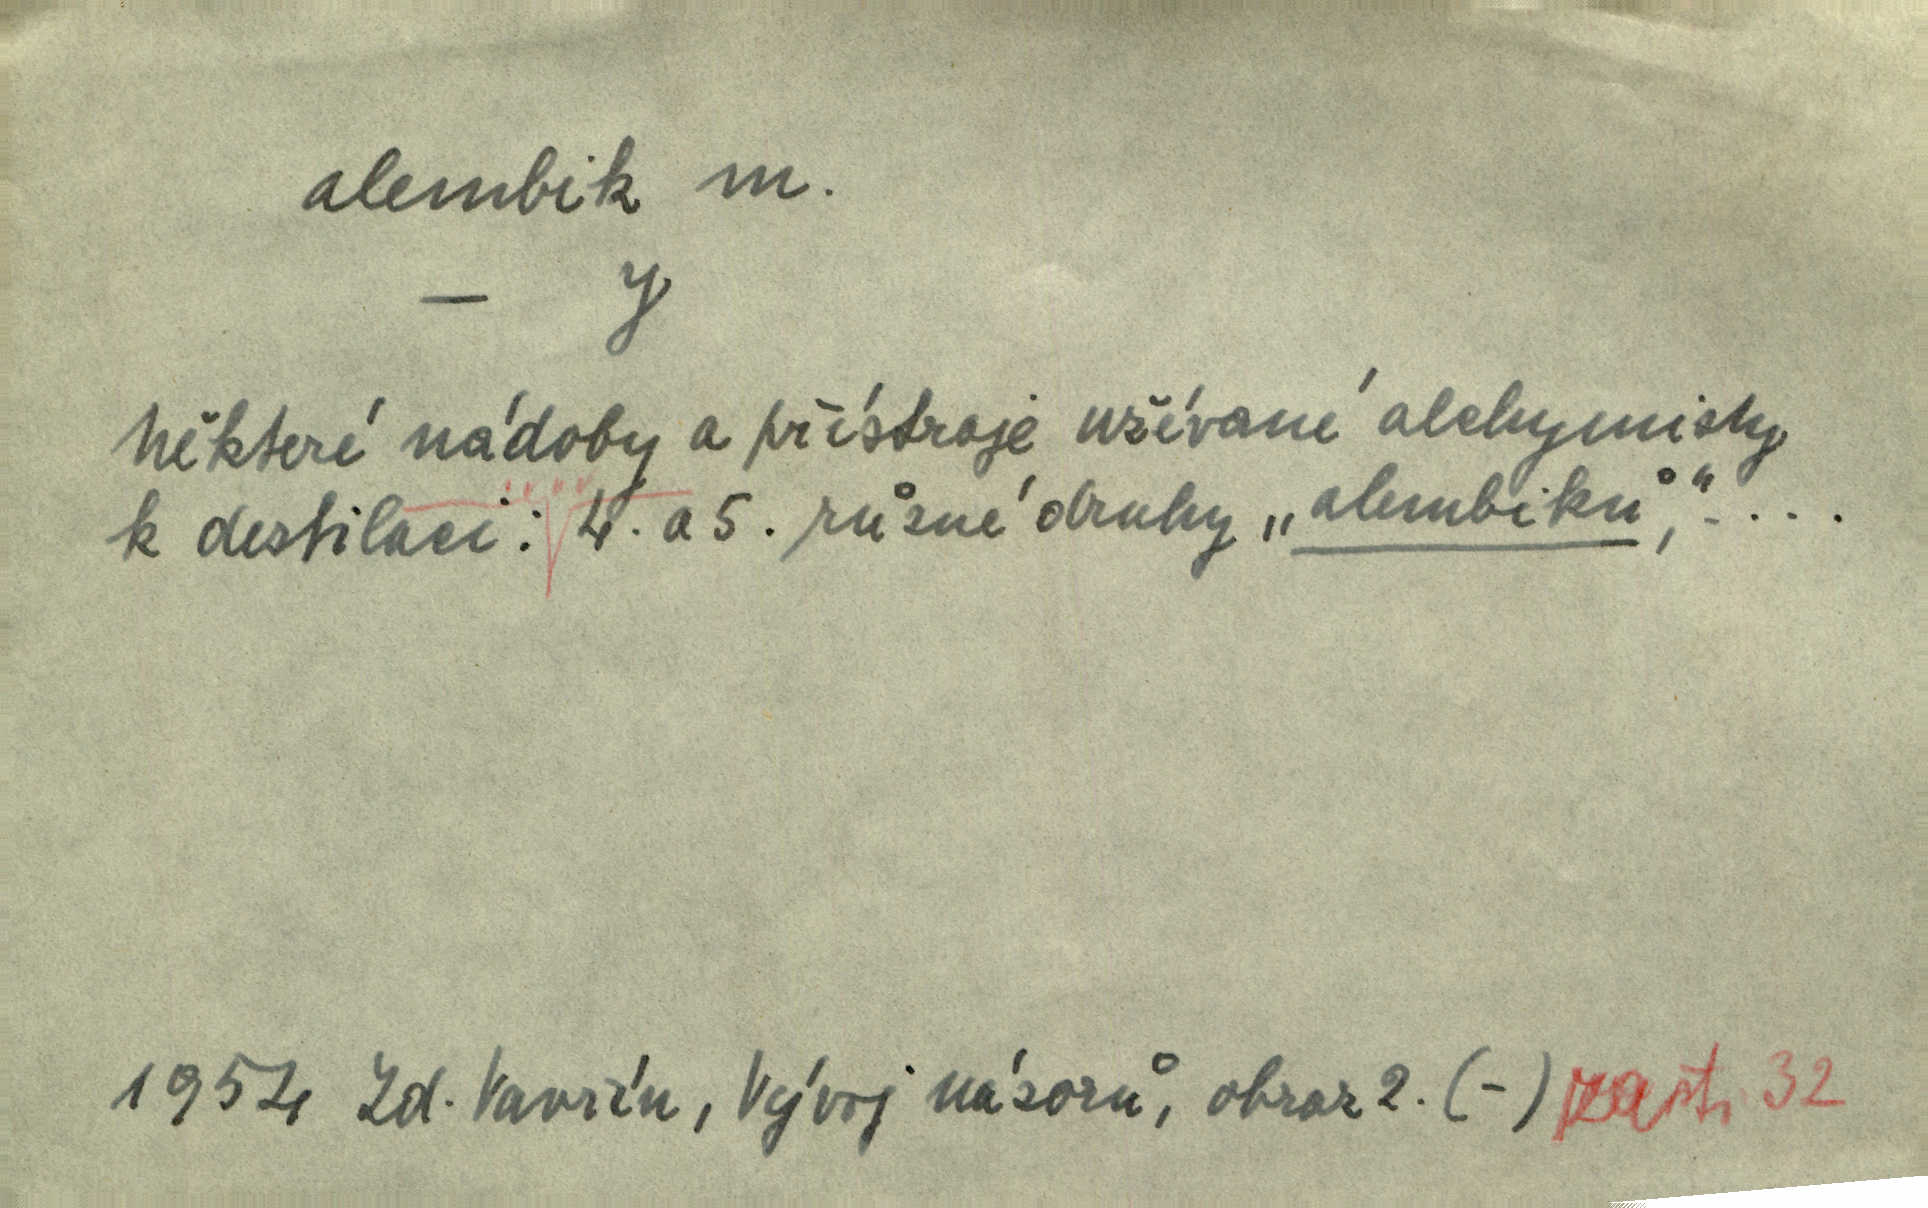 alembik m.
— y
Některé nádoby a přístroje užívané alchymisty
k destilaci: 4. a 5. různé druhy „alembiků“, ....
1954 Zd. Vavřín, Vývoj názorů, obraz 2. (-) 32